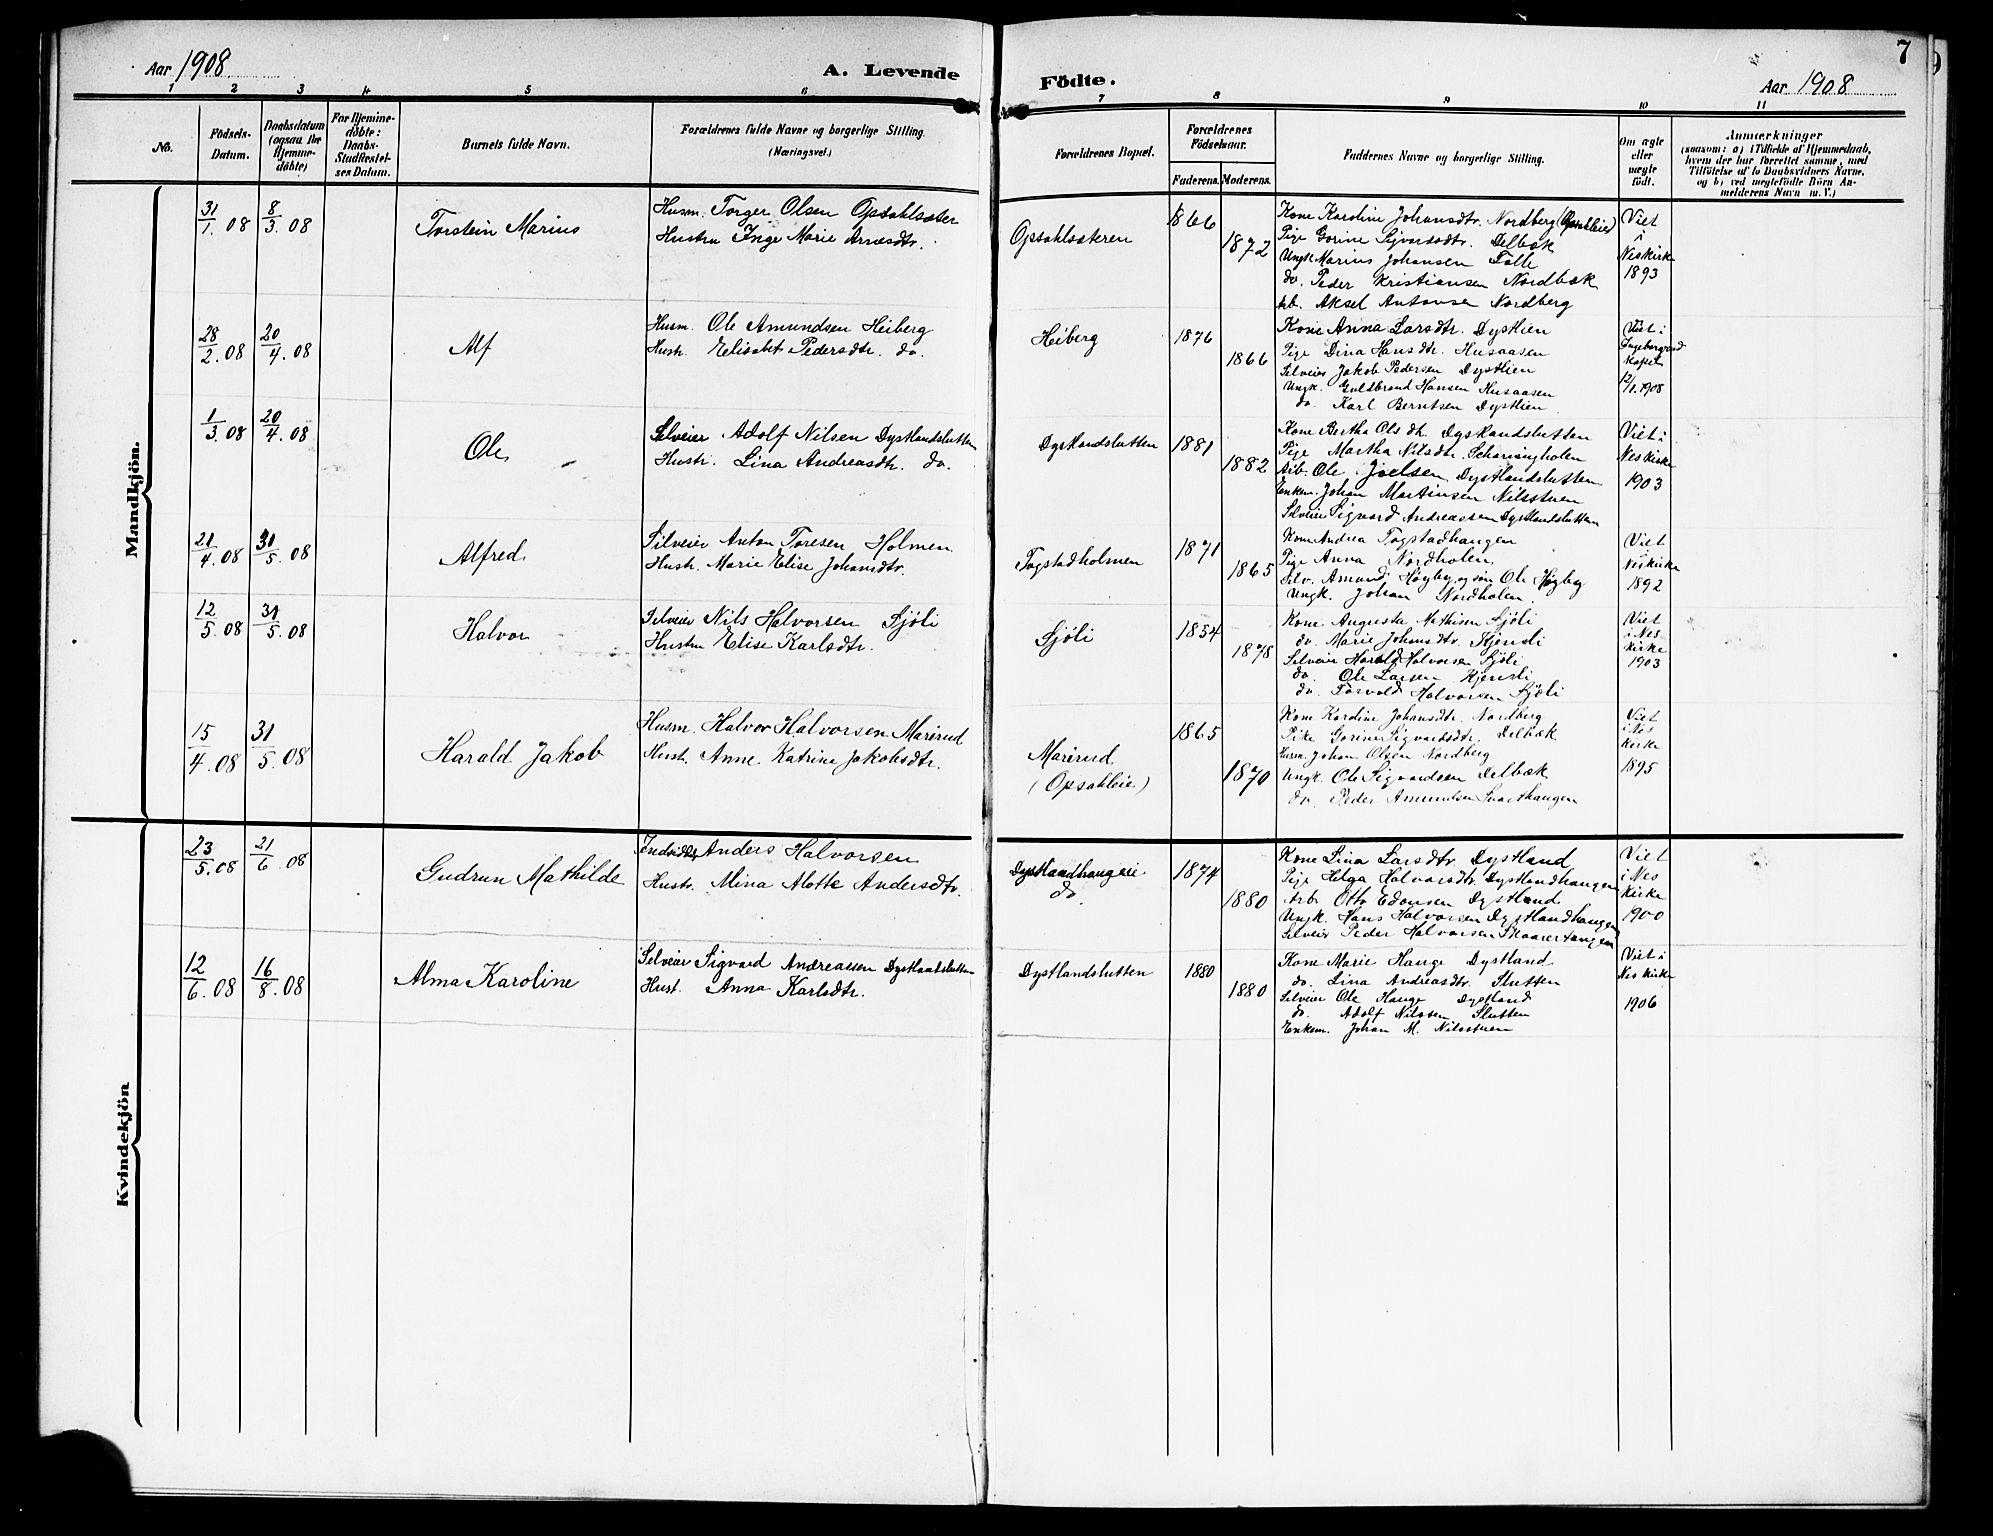 Aar 1908
A. Levende
Födte.
Aar 1908
7
1 2 3 4 5 6 7 8 9 10 11
No.
Födsels-
Datum.
Daabsdatum
(ogsaa for
Hjemme-
döbte)
For Hjemme-
döbte:
Daabs-
Stadfæstel-
ses Datum.
Barnets fulde Navn.
Forældrenes fulde Navne og borgerlige Stilling.
(Næringsvei.)
Forældrenes Bopæl.
Forældrenes
Födselsaar.
Faderens. Moderens.
Faddernes Navne og borgerlige Stilling.
Om ægte
eller
uægte
födt.
Anmærkninger
(saasom: a) i Tilfælde af Hjemmedaab,
hvem der har forrettet samme, med
Tilföielse af to Daabsvidners Navne,
og b) ved uægtefödte Börn An-
melderens Navn m. V.)
Mandkjön.
31/1. 08
8/3 08
Torstein Marius
Husm. Torger Olsen Opsahlsæter
Hustru Inge Marie Arnesdtr.
Opsahlsæteren
1866
1872
Kone Karoline Johansdtr. Nordberg (Opsahleie)
Pige Gorine Sigvardsdtr. Delbæk
Ungk Marius Johansen Falle
do. Peder Kristiansen Nordbæk
Arb. Aksel Antonsen Nordberg
Viet
i
Neskirke
1893
28/2. 08
20/4. 08
Alf
Husm. Ole Amundsen Heiberg
Hustr. Elisabet Pedersdtr. do.
Heiberg
1876
1866
Kone Anna Larsdtr. Dystlien
Pige Dina Hansdtr. Husaasen
Selveier Jakob Pedersen Dystlien
Ungk. Guldbrand Hansen Husaasen
do. Karl Berntsen Dystlien
Viet i
Kapel
12/1. 1908
1/3. 08
20/4. 08
Ole
Selveier Adolf Nilsen Dystlandslutten
Hustr. Lina Andreasdtr. do.
Dystlandslutten
1881
1882
Kone Bertha Olsdtr. Dystlandslutten
Pige Martha Nilsdtr. Scharningholen
Arb. Ole Joelsen Dystlandslutten
Enkem. Johan Martinsen Nilsstuen
Selveier Sigvard Andreassen Dystlandslutten
Viet i
Neskirke
1903
21/4. 08
31/5. 08
Alfred
Selveier Anton Toresen Holmen
Hustr. Marie Elise Johansdtr.
Togstadholmen
1871
1865
Kone Andrea Togstadhaugen
Pige Anna Nordholen
Selv. Amund Höyby og søn Ole Höyby
Ungk. Johan Nordholen
Viet
i
Neskirke
1892
12/5. 08
31/5. 08
Halvor
Selveier Nils Halvorsen Sjöli
Hustru Elise Karlsdtr.
Sjöli
1854
1878
Kone Augusta Mathisen Sjöli
do. Marie Johansdtr. Kjensli
Selveier Harald Halvorsen Sjöli
do. Ole Larsen Kjensli
do. Torvold Halvorsen Sjöli
Viet
i Nes
kirke
1903
15/4. 08
31/5. 08
Harald Jakob
Husm. Halvor Halvorsen Marirud
Hustr. Anne Katrine Jakobsdtr.
Marirud
(Opsahleie)
1865
1870
Kone Karoline Johansdtr. Nordberg
Pike Gorine Sigvardsdtr. Delbæk
Husm. Johan Olsen Nordberg
Ungk. Ole Sigvardsen Delbæk
do. Peder Amundsen Svarthaugen
Viet
i Nes
Kirke
1895
Kvindekjön
23/5. 08
21/6. 08
Gudrun Mathilde
Anders Halvorsen
Hustr. Mina Alotte Andersdtr.
Dystlandhaugeie
do.
1874
1880
Kone Lina Larsdtr. Dystland
Pige Helga Halvorsdtr. Dystlandhaugen
Arb. Otto Edonsen Dystland
Ungk. Hans Halvorsen Dystlandhaugen
Selveier Peder Halvorsen Skaarertangen
Viet
i Nes
Kirke
1900
12/6. 08
16/8. 08
Alma Karoline
Selveier Sigvard Andreassen Dystlandslutten
Hust. Anna Karlsdtr.
Dystlandslutten
1880
1880
Kone Marie Hauge Dystland
do. Lina Andreasdtr. Slutten
Selveier Ole Hauge Dystland
do. Adolf Nilssen Slutten
Enkem. Johan M. Nilsstuen
Viet i
Nes Kirke
1906